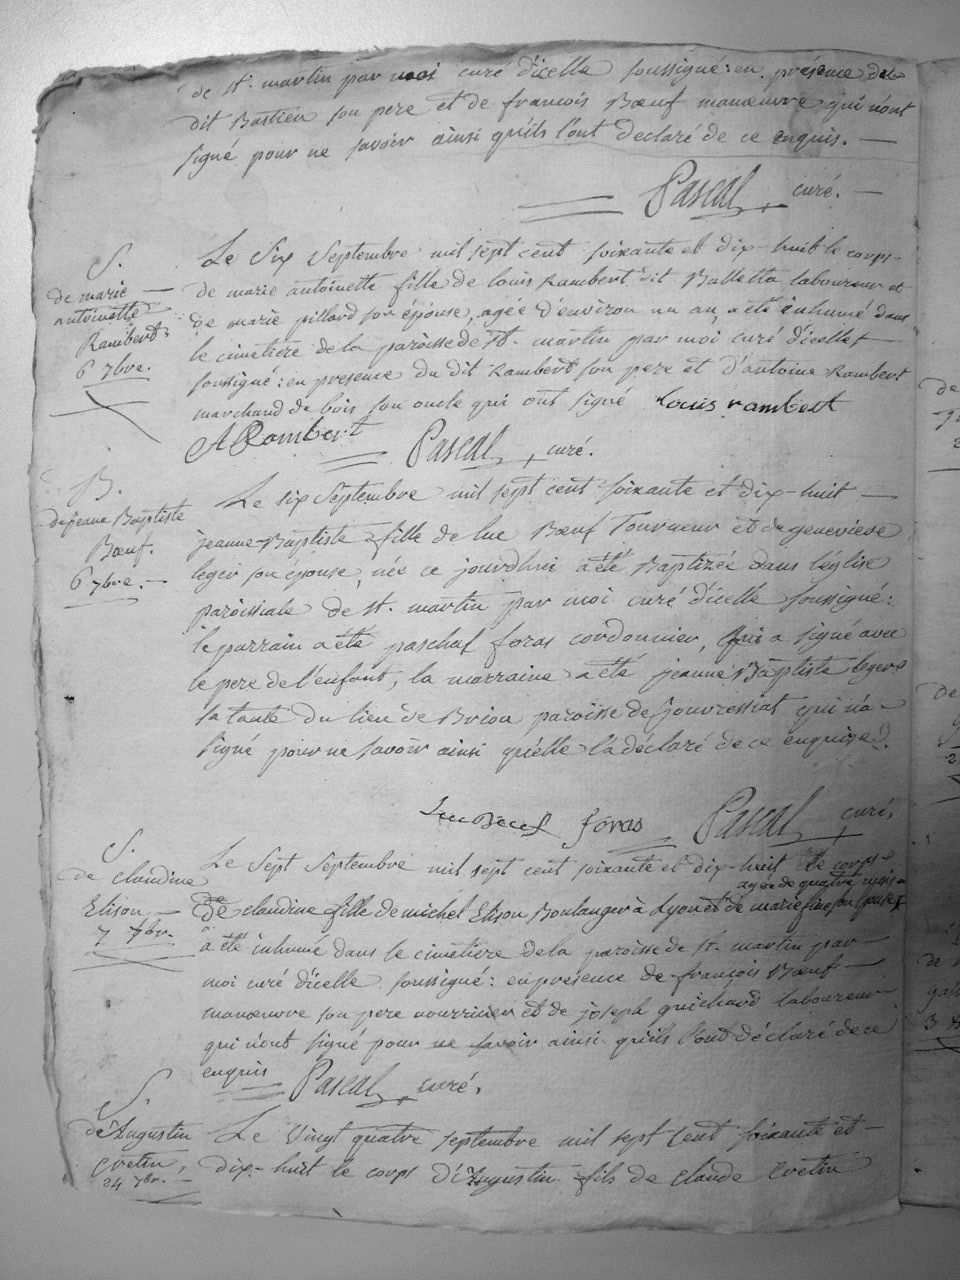 de st. martin par moi curé d'icelle soussigné: en présence du
dit Bastien son pere et de francois Bœuf manœuvre qui n'ont
signé pour ne savoir ainsi qu'ils l'ont declaré de ce enquis. —
Pascal, curé. —
S.
de marie —
antoinette
Rambert
6 7bre.
Le Six Septembre mil sept cent soixante et dix-huit le corps
de marie antoinette fille de louis Rambert dit laboureur et
de marie pillard son épouse, agée d'environ un an, a été inhumé dans
le cimetiere de la paroisse de St. martin par moi curé d'icelle —
soussigné: en presence du dit Rambert son pere et d'antoine Rambert
marchand de bois son oncle qui ont signé Louis rambert
A Rambert Pascal, curé.
B.
de jeanne Baptiste
Bœuf.
6 7bre. —
Le six Septembre mil sept cent soixante et dix-huit —
jeanne-Baptiste fille de luc Bœuf Tourneur et de genevieve
leger son épouse, née ce jourd'hui a été Baptizée dans l'église
paroissiale de st. martin par moi curé d'icelle soussigné:
le parrain a été paschal foras cordonnier, qui a signé avec
le pere de l'enfant, la marraine a été jeanne Baptiste leger
sa tante du lieu de Brion paroisse de qui n'a
signé pour ne savoir ainsi qu'elle l'a déclaré de ce enquise.
Luc Bœuf foras Pascal, curé,
S.
de claudine
Elison —
7 7br.
Le Sept Septembre mil sept cent soixante et dix-huit le corps
agée de quatre mois
de claudine fille de michel Elison Boulanger à Lyon et de marie son épouse
a été inhumé dans le cimetiere de la paroisse de st. martin par —
moi curé d'icelle soussigné: en presence de françois Bœuf —
manœuvre son pere nourricier et de joseph guichard laboureur
qui n'ont signé pour ne savoir ainsi qu'ils l'ont déclaré de ce
enquis Pascal, curé.
S.
d'Augustin
Cretin,
24 7br. —
Le Vingt quatre septembre mil sept cent soixante et —
dix-huit le corps d'Augustin fils de Claude Cretin